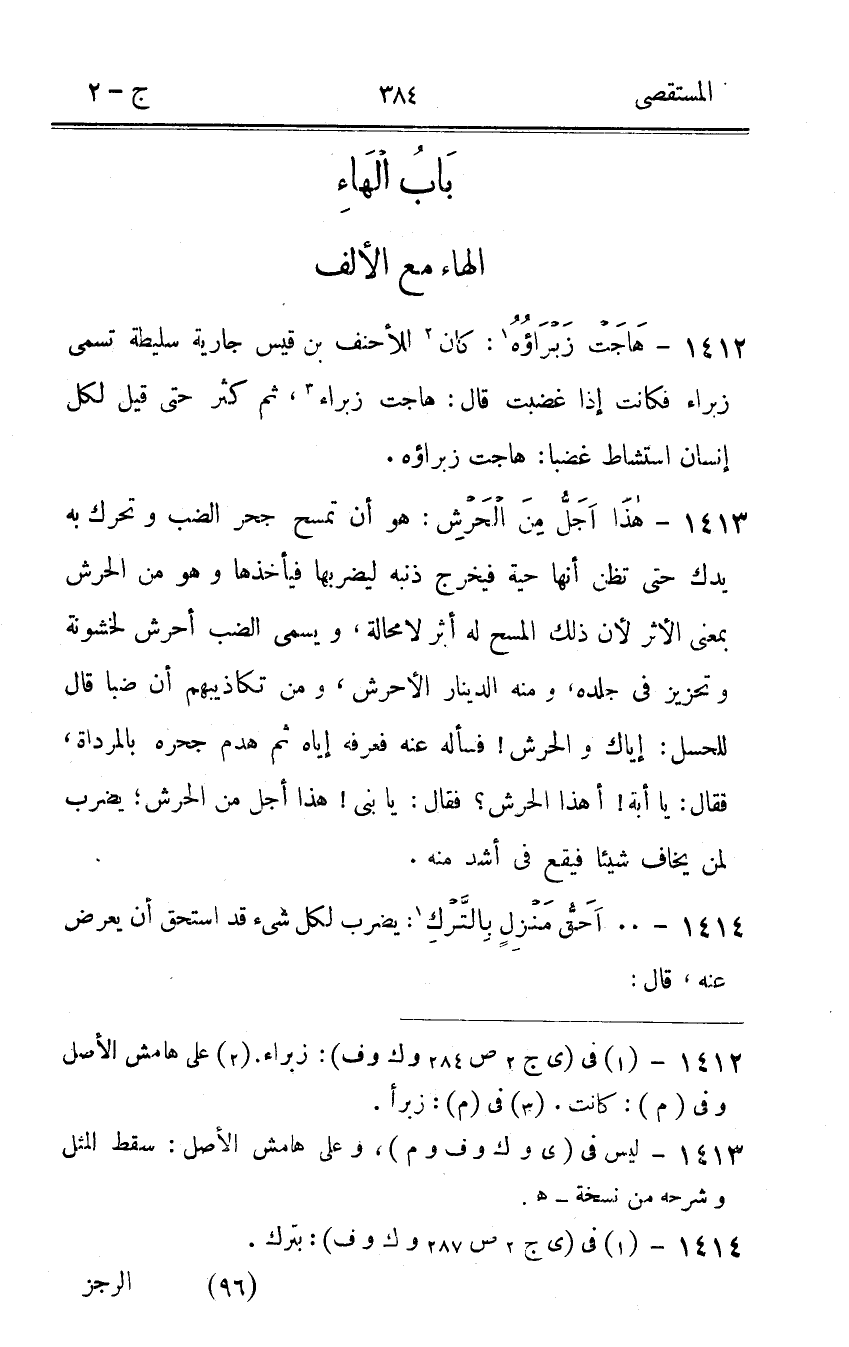 المستقصى ٣٨٤ ج - ٢
بَابُ الْهَاءِ
الهاء مع الألف
١٤١٢ - هَاجَتْ زَبْرَاؤُهُ ١: كان ٢ للأحنف بن قيس جارية سليطة تسمى
زبراء فكانت إذا غضبت قال: هاجت زبراء ٣، ثم كثر حتى قيل لكل
إنسان استشاط غضبا: هاجت زبراؤه .
١٤١٣ - هٰذَا اَجَلُّ مِنَ الْحَرْشِ: هو أن تمسح جحر الضب و تحرك به
يدك حتى تظن أنها حية فيخرج ذنبه ليضربها فيأخذها و هو من الحرش
بمعنى الأثر لأن ذلك المسح له أثر لامحالة، و يسمى الضب أحرش لخشونة
و تحزيز فى جلده، و منه الدينار الأحرش، و من تكاذيبهم أن ضبا قال
للحسل: إياك و الحرش! فسأله عنه فعرفه إياه ثم هدم جحره بالمرداة،
فقال: يا أبة! أ هذا الحرش؟ فقال: يا بنى! هذا أجل من الحرش؛ يضرب
لمن يخاف شيئا فيقع فى أشد منه .
١٤١٤ - .. اَحَقُّ مَنْزِلٍ بِالتَّرْكِ ١: يضرب لكل شىء قد استحق أن يعرض
عنه، قال:
١٤١٢ - (١) فى (ى ج ٢ ص ٢٨٤ و ك و ف): زبراء. (٢) على هامش الأصل
و فى (م): كانت . (٣) فى (م): زبرأ .
١٤١٣ - ليس فى (ى و ك و ف و م)، و على هامش الأصل: سقط المثل
و شرحه من نسخة - ه .
١٤١٤ - (١) فى (ى ج ٢ ص ٢٨٧ و ك و ف): بترك .
(٩٦) الرجز